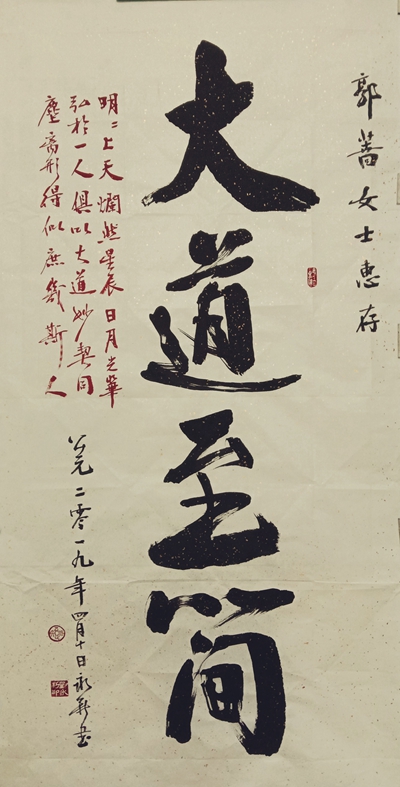 郭蔷女士惠存
大道至简
明〻上天爛然星辰日月光華
弘於一人俱以大道妙契同
塵离形得似庶幾斯人
公元二零一九年四月十日永新书